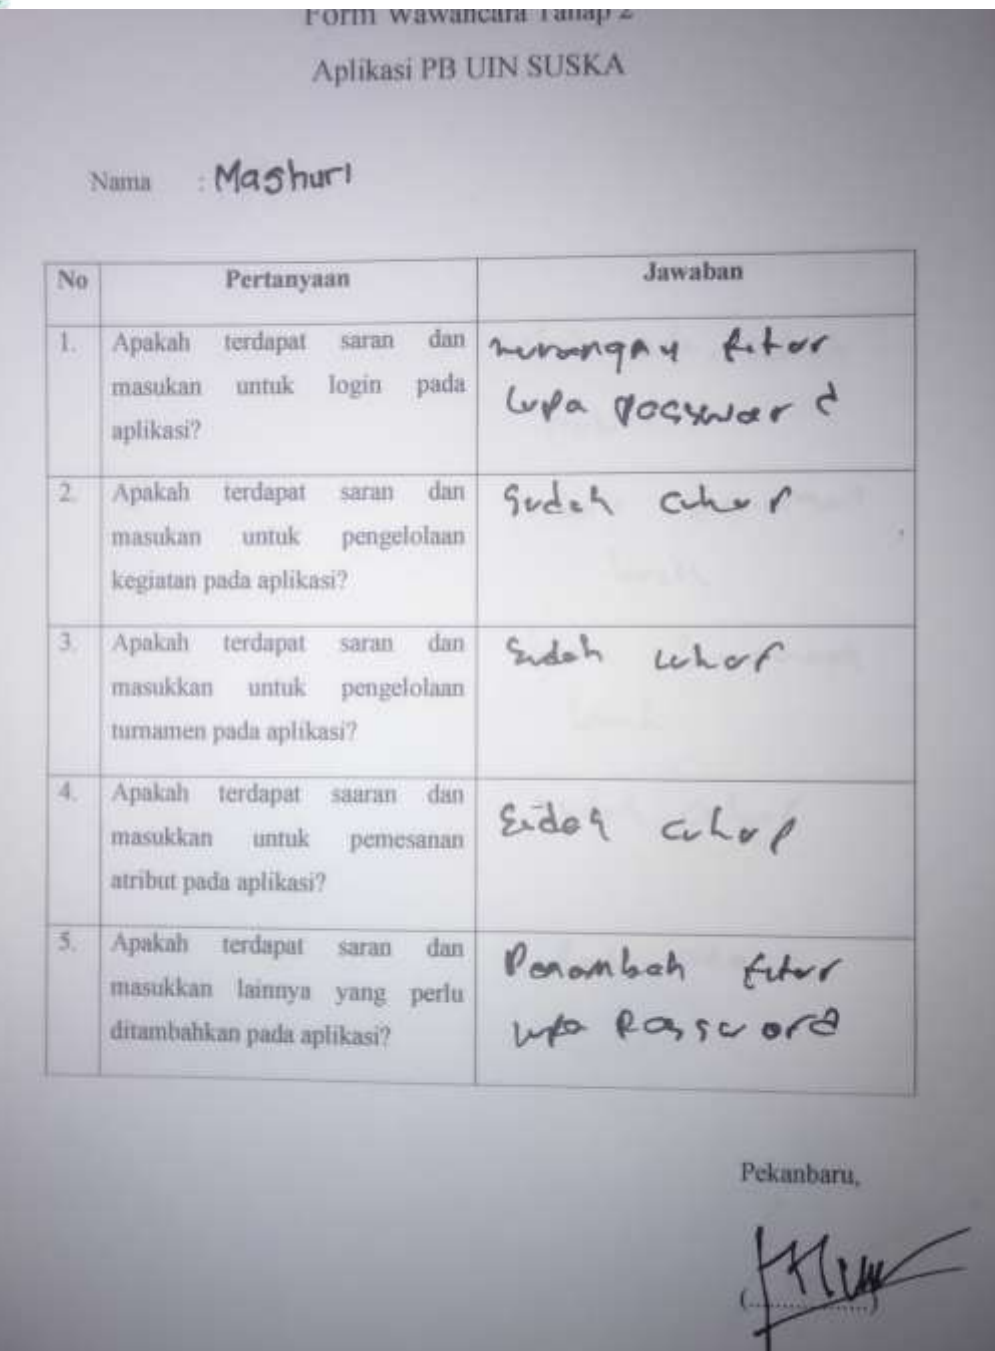 Form Wawancara Tahap 2
Aplikasi PB UIN SUSKA
Nama : Mashuri
No Pertanyaan Jawaban
1. Apakah terdapat saran dan
masukan untuk login pada
aplikasi?
fitur
lupa password
2. Apakah terdapat saran dan
masukan untuk pengelolaan
kegiatan pada aplikasi?
Sudah cukup
3. Apakah terdapat saran dan
masukkan untuk pengelolaan
turnamen pada aplikasi?
Sudah cukup
4. Apakah terdapat saaran dan
masukkan untuk pemesanan
atribut pada aplikasi?
Sudah cukup
5. Apakah terdapat saran dan
masukkan lainnya yang perlu
ditambahkan pada aplikasi?
Penambah fitur
lupa Password
Pekanbaru,
(................)